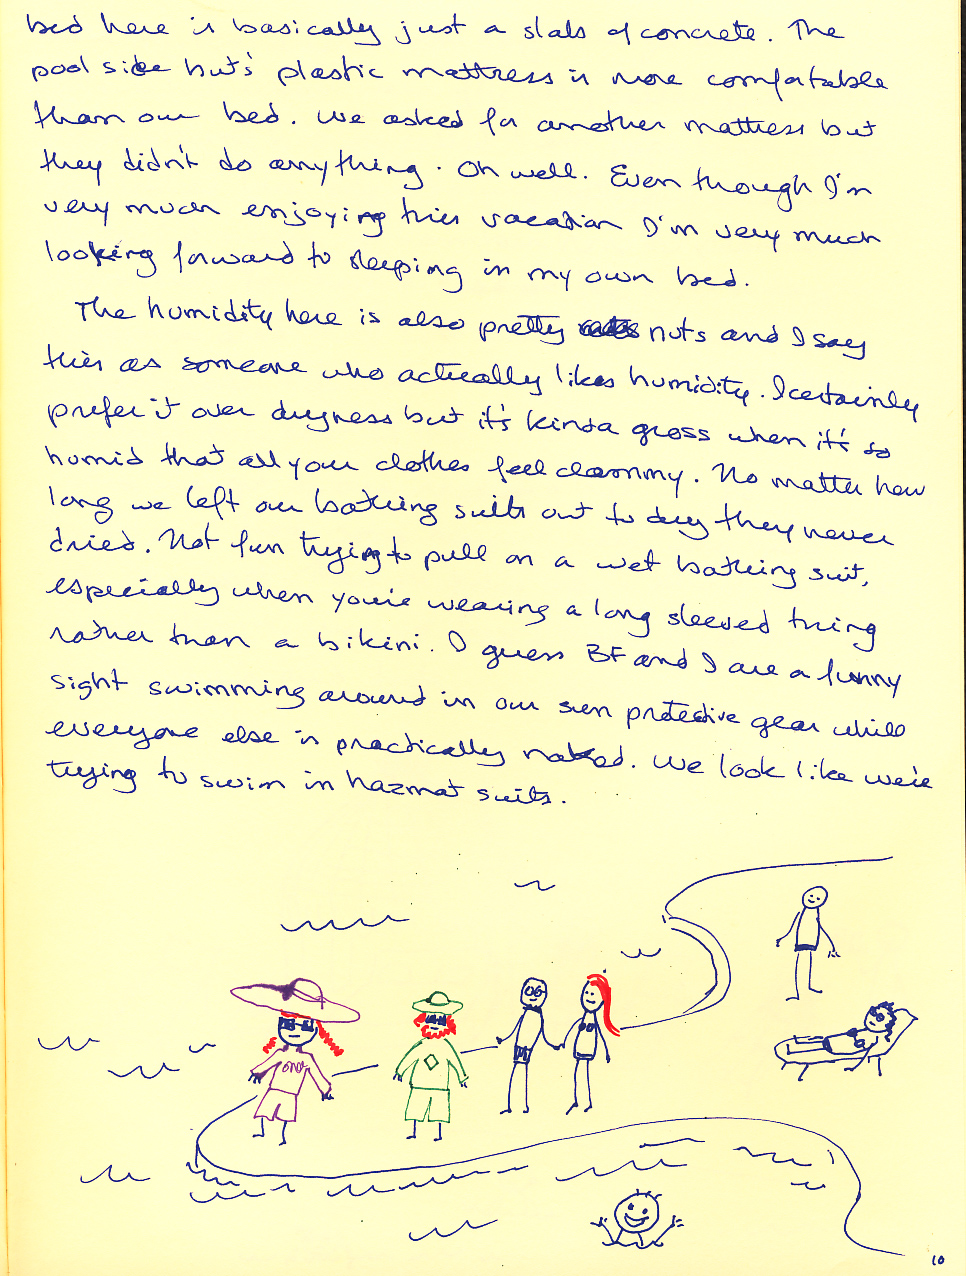 bed here is basically just a slab of concrete. The
pool side hut's plastic mattress is more comfortable
than our bed. We asked for another mattress but
they didn't do anything. Oh well. Even though I'm
very much enjoying this vacation I'm very much
looking forward to sleeping in my own bed.
The humidity here is also pretty nuts and I say
this as someone who actually likes humidity. I certainly
prefer it over dryness but it's kinda gross when it's so
humid that all your clothes feel clammy. No matter how
long we left our bathing suits out to dry they never
dried. Not fun trying to pull on a wet bathing suit,
especially when you're wearing a long sleeved thing
rather than a bikini. I guess BF and I are a funny
sight swimming around in our sun protective gear while
everyone else is practically naked. We look like we're
trying to swim in hazmat suits.
10